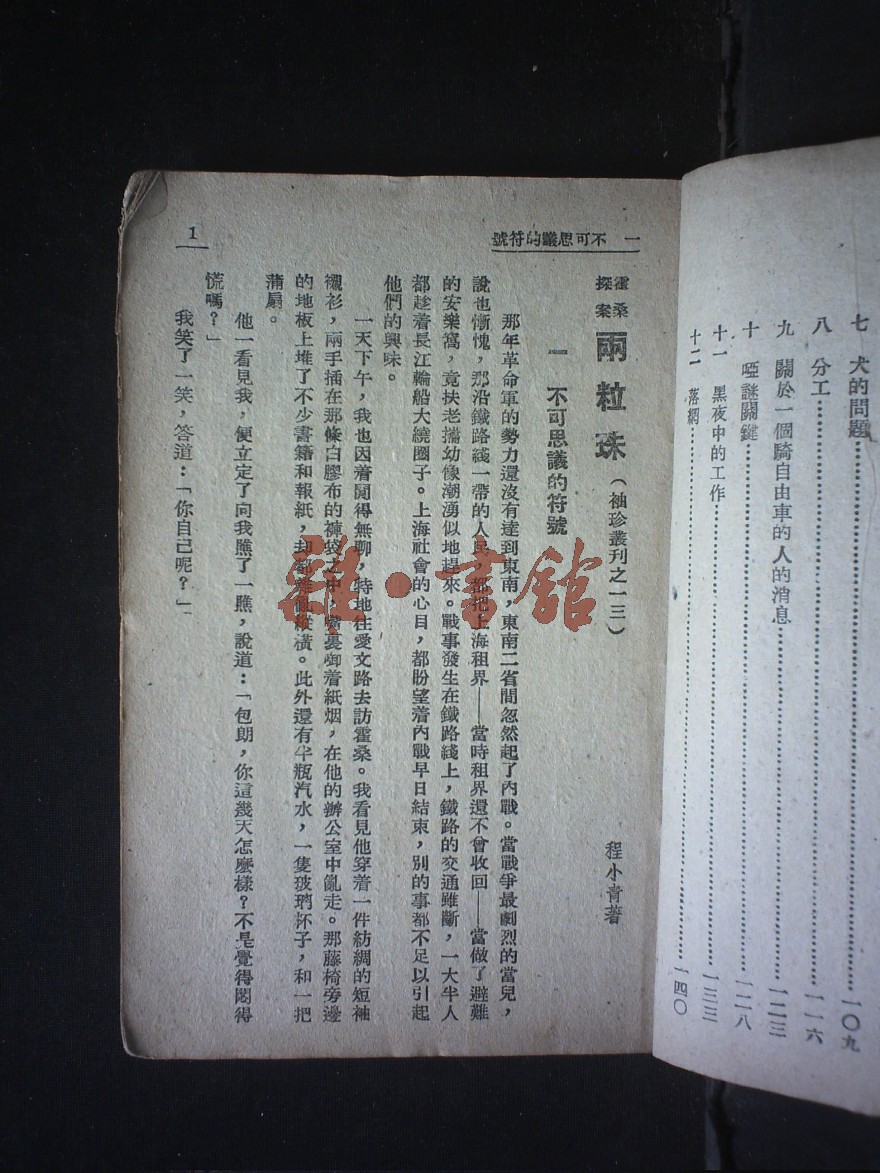 七　犬的問題……一〇九
八　分工……一一六
九　關於一個騎自由車的人的消息……一二三
十　啞謎關鍵……一二八
十一　黑夜中的工作……一三三
十二　落網……一四〇
一　不可思議的符號
1
霍桑探案　兩粒珠（袖珍叢刊之一三）
程小青著
一　不可思議的符號
那年革命軍的勢力還沒有達到東南，東南二省間忽然起了內戰。當戰爭最劇烈的當兒，
說也慚愧，那沿鐵路綫一帶的人民，都把上海租界——當時租界還不曾收回——當做了避難
的安樂窩，竟扶老攜幼像潮湧似地趕來。戰事發生在鐵路綫上，鐵路的交通雖斷，一大半人
都趁着長江輪船大繞圈子。上海社會的心目，都盼望着內戰早日結束，別的事都不足以引起
他們的興味。
一天下午，我也因着悶得無聊，特地往愛文路去訪霍桑。我看見他穿着一件紡綢的短袖
襯衫，兩手插在那條白膠布的褲袋之中，嘴裏啣着紙烟，在他的辦公室中亂走。那藤椅旁邊
的地板上堆了不少書籍和報紙，却都雜亂縱橫。此外還有半瓶汽水，一隻玻璃杯子，和一把
蒲扇。
他一看見我，便立定了向我瞧了一瞧，說道：「包朗，你這幾天怎麼樣？不是覺得悶得
慌嗎？」
我笑了一笑，答道：「你自己呢？」
雜·書館